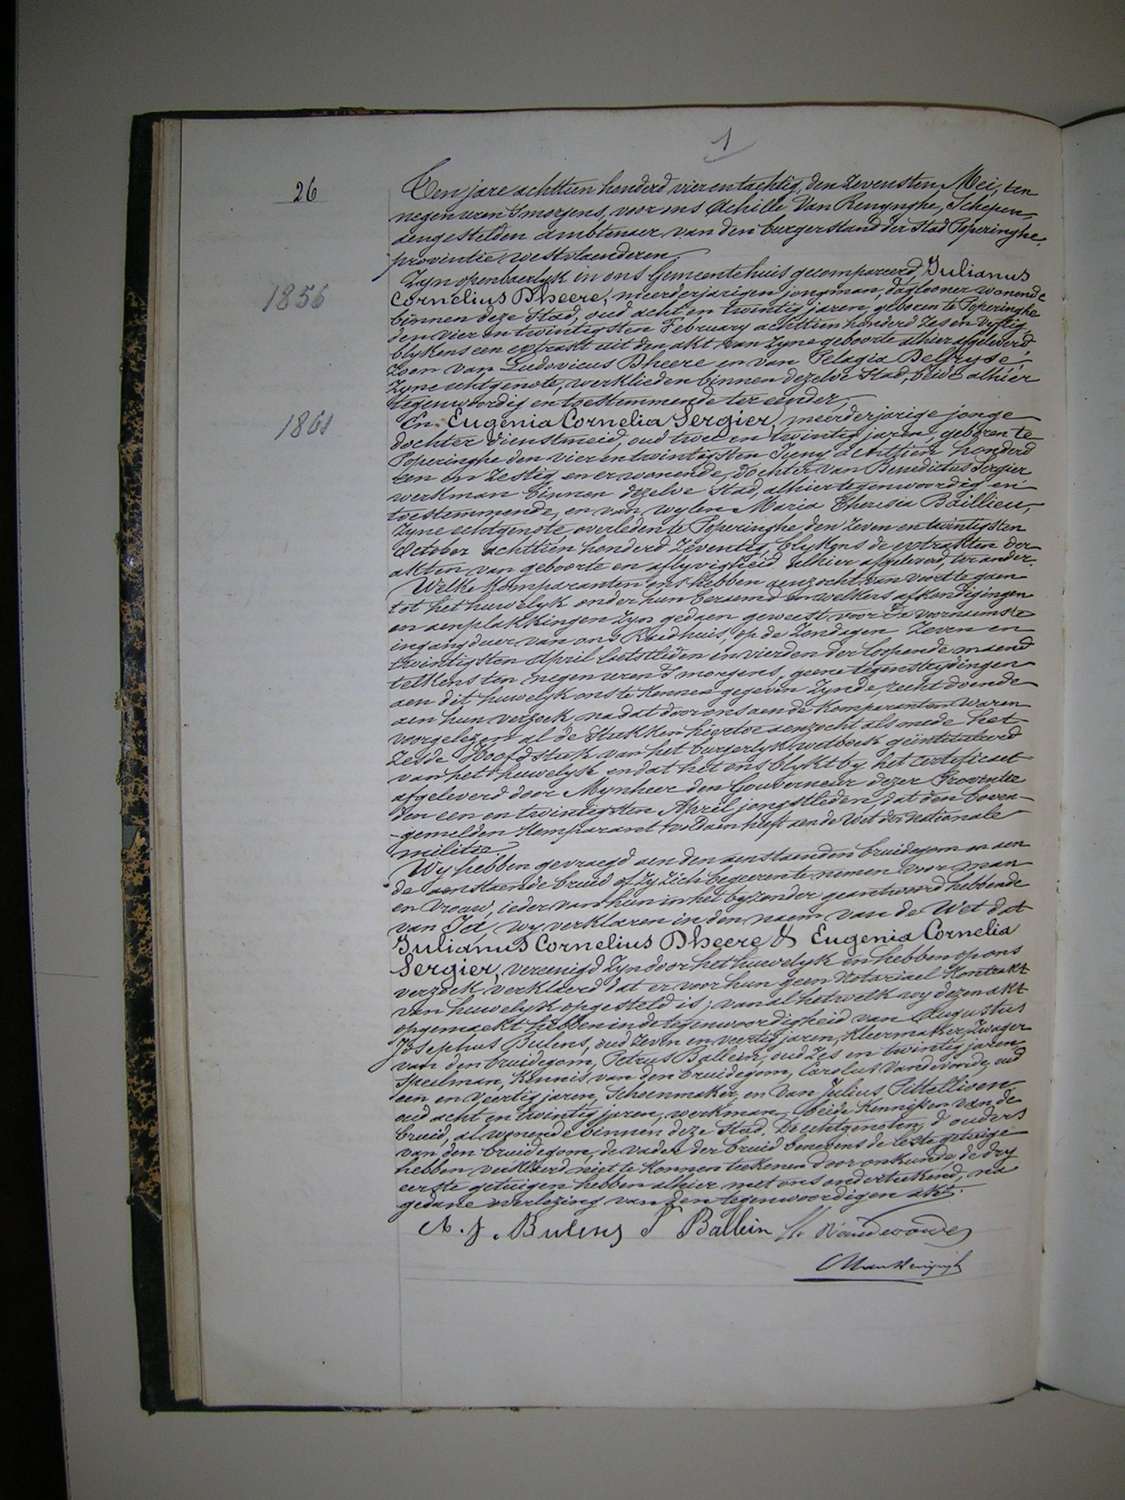 1
26
Ten jare achttien honderd vier en tachtig, den zevensten Mei, ten
negen uren 's morgens, voor ons Achille Van Renynghe, Schepen,
aengestelden ambtenaer van den burgerstand der Stad Poperinghe,
provintie westvlaenderen,
Zijn openbaerlyk in ons Gemeentehuis gecompareerd, Julianus
1856
Cornelius Dheere, meerderjarigen jongman, daglooner wonende
binnen deze Stad, oud acht en twintig jaren, geboren te Poperinghe
den vier en twintigsten February achttien honderd zes en vyftig
blykens een extrakt uit den akt van zyne geboorte alhier afgeleverd
Zoon van Ludovicus Dheere en van Pelagia
Zyne echtgenote, werklieden binnen dezelve Stad, beide alhier
tegenwoordig en toestemmende ter eender,
1861
En Eugenia Cornelia Sergier, meerderjarige jonge
dochter dienstmeid, oud twee en twintig jaren, geboren te
Poperinghe den vier en twintigsten Juny achttien honderd
een en zestig en er wonende, dochter van Benedictus Sergier
werkman binnen dezelve Stad, alhier tegenwoordig en
toestemmende, en van wylen Maria Theresia Baillieu,
Zyne echtgenote, overleden te Poperinghe den zeven en twintigsten
October achttien honderd zeventig, blykens de extrakten der
akten van geboorte en aflyvigheid alhier afgeleverd, ter ander.
Welke komparanten ons hebben aenzocht van voort te gaen
tot het huwelyk onder hun beraemd en welkers afkondigingen
en aenplakkingen zyn gedaen geweest voor de voornaemste
ingangdeur van ons Raedhuis, op de Zondagen zeven en
twintigsten April laetstleden en vierden der loopende maend
telkens ten negen uren 's morgens, geene tegenstrydingen
aen dit huwelyk ons te kennen gegeven zynde, recht doende
aen hun verzoek, na dat door ons aen de komparanten waren
voorgelezen al de stukken hiertoe aenzocht als mede het
zesde Hoofdstuk van het burgerlyk wetboek geintituleerd
van het huwelyk en dat het ons blykt by het certificaet
afgeleverd door Mynheer den Gouverneur dezer Provintie
den een en twintigsten April jongstleden, dat den boven-
gemelden Komparant voldaen heeft aen de Wet der nationale
militie.
Wy hebben gevraegd aen den aenstaenden bruidegom en aen
de aenstaende bruid of zy zich begeeren te nemen voor man
en vrouw, ieder van hun in het byzonder geantwoord hebbende
van Ja, wy verklaren in den naem van de Wet dat
Julianus Cornelius Dheere & Eugenia Cornelia
Sergier, vereenigd zyn door het huwelyk en hebben op ons
verzoek verklaerd dat er voor hun geen Notariael Kontrakt
van huwelyk opgesteld is; van al het welk wy dezen akt
opgemaekt hebben in de tegenwoordigheid van Augustus
Josephus Bulens, oud zeven en veertig jaren, Kleermaker, Zwager
van den bruidegom, Petrus Ballein, oud zes en twintig jaren,
Speelman, Kennis van den bruidegom, Carolus Vandevoorde, oud
een en veertig jaren, Schoenmaker, en van Julius
oud acht en twintig jaren, werkman beide Kennissen van de
bruid, al wonende binnen deze Stad. De echtgenoten, d'ouders
van den bruidegom, de vader der bruid benevens de leste getuige
hebben verklaerd niet te konnen teekenen door onkunde, de dry
eerste getuigen hebben alhier met ons onderteekend, na
gedane voorlezing van den tegenwoordigen akt.
A. J. Bulens P Ballein Vandevoorde